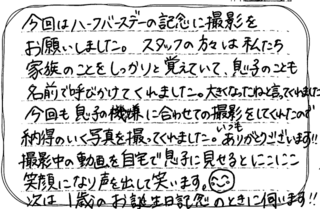 今回はハーフバースデーの記念に撮影を
お願いしました。スタッフの方々は私たち
家族のことをしっかりと覚えていて、息子のことも
名前で呼びかけてくれました。大きくなったねと言ってくれました
今回も息子の機嫌に合わせての撮影をしてくれたので
納得のいく写真を撮ってくれました。いつもありがとうございます!!
撮影中の動画を自宅で息子に見せるとにこにこ
笑顔になり声を出して笑います。
次は1歳のお誕生日記念のときに伺います!!